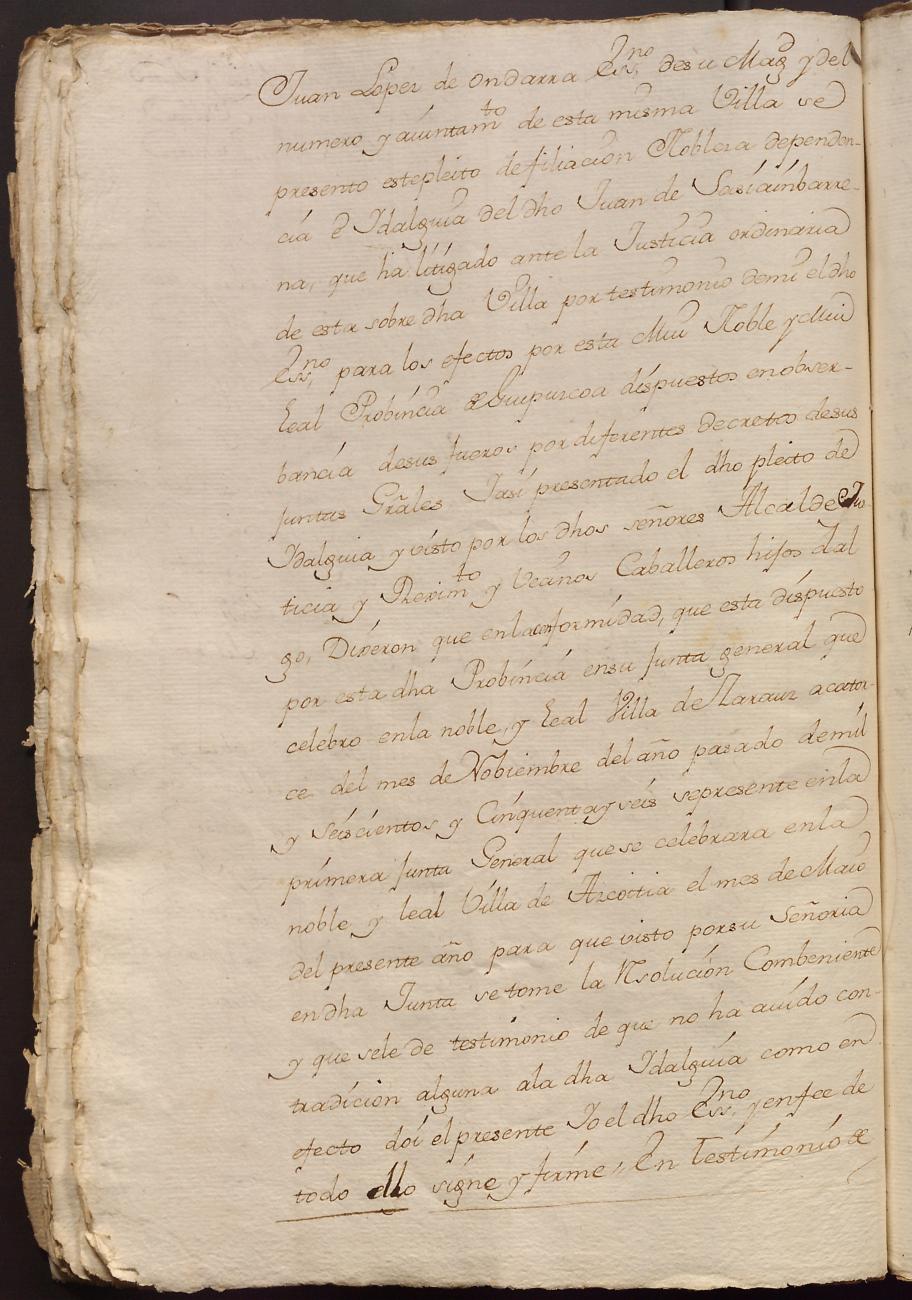 Juan Lopez de ondarra Essno desu Magd y del
numero y aiuntamto de esta misma Villa se
presento estepleito defiliacion Nobleza dependen-
cia e Idalguia del dho Juan de Sasiainbarre-
na, que ha litigado ante la Justicia ordinaria
de esta sobre dha Villa por testimonio demi el dho
Essno para los efectos por esta Mui Noble y Mui
Leal Probincia de Guipuzcoa dispuestos en obser-
bancia desus fueros por diferentes decretos desus
Juntas Grales Iasi presentado el dho pleito de
Idalguia y visto por los dhos señores Alcalde Jus-
ticia y Reximto y Vecinos Caballeros hijos dal
go, Dixeron que enla conformidad, que esta dispuesto
por esta dha Probincia ensu Junta general que
celebro enla noble, y Leal Villa de Zarauz acator-
ce del mes de Nobiembre del año pasado demil
y seiscientos y Cinquenta y seis sepresente enla
primera Junta General que se celebrara en la
noble y leal Villa de Azcoitia el mes de Maio
del presente año para que visto porsu Señoria
en dha Junta setome la Rsolucion Combeniente
y que sele de testimonio de que no ha auido con-
tradicion alguna ala dha Idalguia como en
efecto doi el presente Io el dho Essno y enfee de
todo ello signe y firme, En Testimonio de